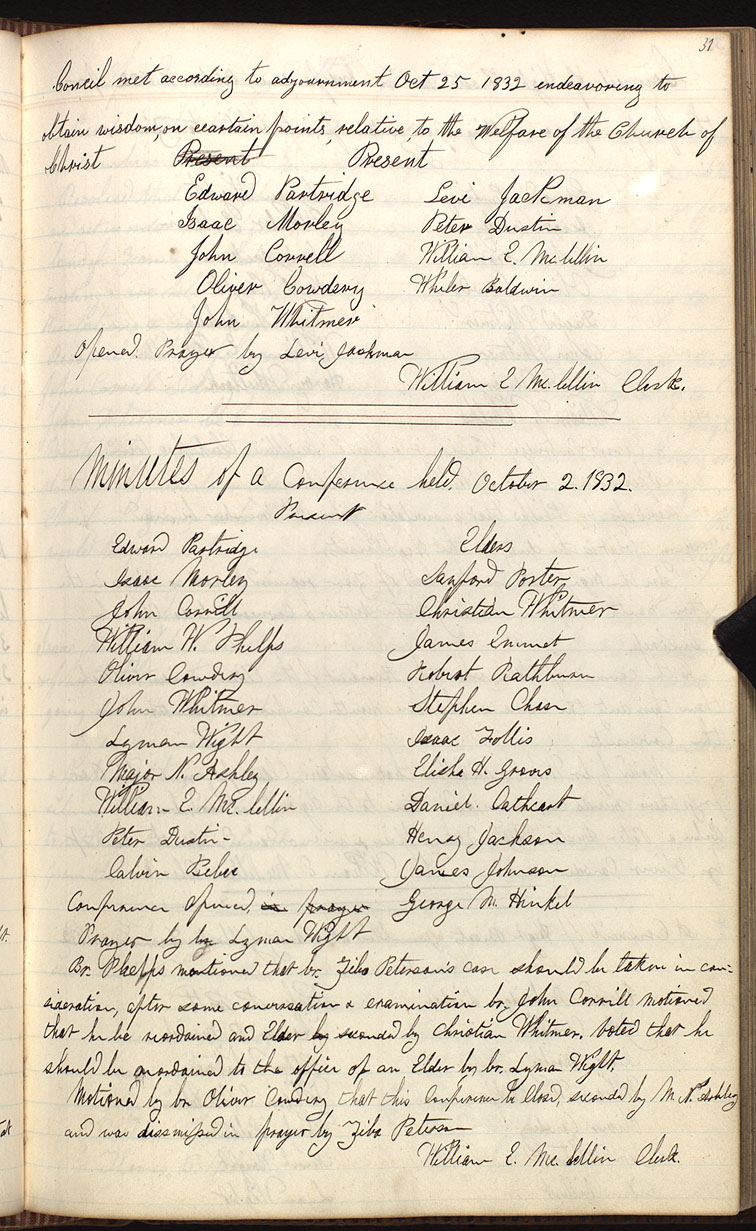 31
Concil met according to adjournment Oct 25 1832 endeavoring to
obtain wisdom, on ceartain points, relative, to the Welfare of the Church of
Christ Present Present
Edward Partridge Levi Jackman
Isaac Morley Peter Dustin
John Correll William E. Mc.lellin
Oliver Cowdery Whiler Baldwin
John Whitmer
Opened. Prayer by Levi, Jackman
William E Mc.lellin Clerk.
Minutes of a Conference held. October 2. 1832.
Present
Edward Partridge Elders
Isaac Morley Sanford Porter
John Corrill Christian Whitmer
William W. Phelps James Emmet
Oliver Cowdery Robert Rathburn
John Whitmer Stephen Chase
Lyman Wight Isaac Follis
Major N. Ashley Elisha H. Groves
William E. Mc.lellin Daniel. Cathcart
Peter Dustin- Henry Jackson
Calvin Bebee James Johnson
Conference opened, in prayer George M. Hinkel
Prayer by by Lyman Wight
Br. Phelps mentioned that br. Ziba Peterson's case should be taken in con=
sideration, after some conversation & examination br. John Corrill motioned
that he be reordained and Elder by seconded by Christian Whitmer. Voted that he
should be reordained to the office of an Elder by br. Lyman Wight.
Motioned by br. Oliver Cowdery that this Conference be Closed, seconded by M. N. Ashley
and was dissmissed in prayer by Ziba Peterson
William E. Mc.lellin Clerk.